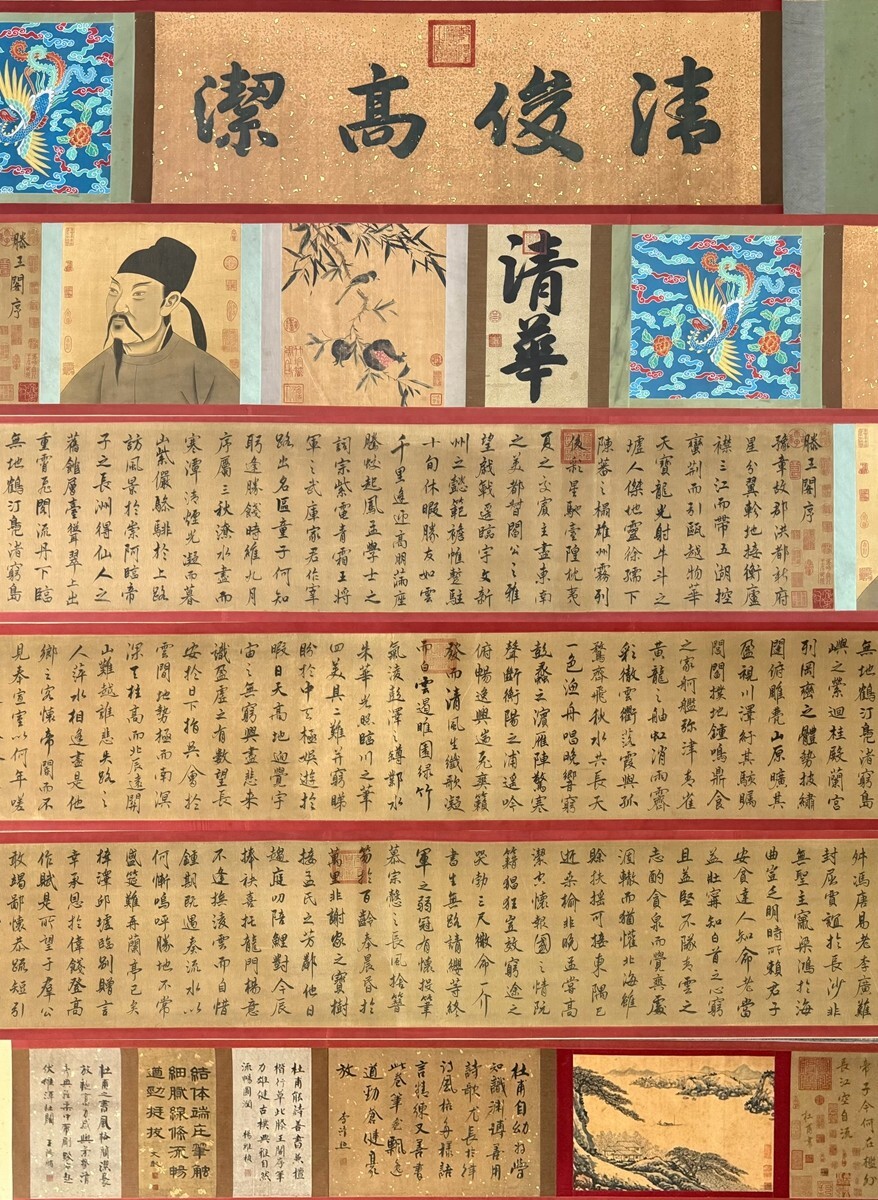 清俊高潔
清華
滕王閣序
滕王閣序
豫章故郡洪都新府
星分翼軫地接衡廬
襟三江而帶五湖控
蠻荊而引甌越物華
天寶龍光射牛斗之
墟人傑地靈徐孺下
陳蕃之榻雄州霧列
俊彩星馳臺隍枕夷
夏之交賓主盡東南
之美都督閻公之雅
望棨戟遙臨宇文新
州之懿範襜帷暫駐
十旬休暇勝友如雲
千里逢迎高朋滿座
騰蛟起鳳孟學士之
詞宗紫電青霜王將
軍之武庫家君作宰
路出名區童子何知
躬逢勝餞時維九月
序屬三秋潦水盡而
寒潭清煙光凝而暮
山紫儼驂騑於上路
訪風景於崇阿臨帝
子之長洲得仙人之
舊館層臺聳翠上出
重霄飛閣流丹下臨
無地鶴汀鳧渚窮島
無地鶴汀鳧渚窮島
嶼之縈迴桂殿蘭宮
列岡巒之體勢披繡
闥俯雕甍山原曠其
盈視川澤紆其駭矚
閭閻撲地鐘鳴鼎食
之家舸艦彌津青雀
黃龍之舳虹消雨霽
彩徹雲衢落霞與孤
鶩齊飛秋水共長天
一色漁舟唱晚響窮
彭蠡之濱雁陣驚寒
聲斷衡陽之浦遙吟
俯暢逸興遄飛爽籟
發而清風生纖歌凝
而白雲遏睢園綠竹
氣凌彭澤之樽鄴水
朱華光照臨川之筆
四美具二難并窮睇
眄於中天極娛遊於
暇日天高地迥覺宇
宙之無窮興盡悲來
識盈虛之有數望長
安於日下指吳會於
雲間地勢極而南溟
深天柱高而北辰遠關
山難越誰悲失路之
人萍水相逢盡是他
鄉之客懷帝閽而不
見奉宣室以何年嗟
舛馮唐易老李廣難
封屈賈誼於長沙非
無聖主竄梁鴻於海
曲豈乏明時所賴君子
安貧達人知命老當
益壯寧知白首之心窮
且益堅不墜青雲之
志酌貪泉而覺爽處
涸轍而猶懽北海雖
賒扶搖可接東隅已
逝桑榆非晚孟嘗高
潔空懷報國之情阮
籍猖狂豈效窮途之
哭勃三尺微命一介
書生無路請纓等終
軍之弱冠有懷投筆
慕宗愨之長風捨簪
笏於百齡奉晨昏於
萬里非謝家之寶樹
接孟氏之芳鄰他日
趨庭叨陪鯉對今辰
捧袂喜托龍門楊意
不逢撫凌雲而自惜
鍾期既遇奏流水以
何慚嗚呼勝地不常
盛筵難再蘭亭已矣
梓澤邱墟臨別贈言
幸承恩於偉餞登高
作賦是所望于群公
敢竭鄙懷恭疏短引
帝子今何在檻外
長江空自流
杜甫書
杜甫自幼好學
知識淵博善用
詩歌尤長於律
詩風格多樣語
言精練又善書
此卷筆意飄逸
遒勁倉健豪
放 李清照
杜甫能詩善書其擅
楷行草此滕王閣序筆
力雄健古樸典雅自然
流暢圓潤 楊維楨
結体端庄筆触
細膩線條流暢
遒勁挺拔
杜甫之書風格簡淡